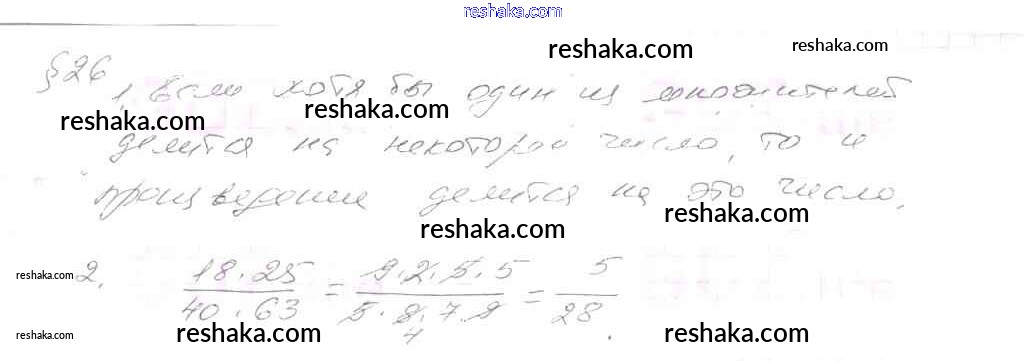 reshaka.com
reshaka.com reshaka.com
§26
1. Если хотя бы один из множителей
reshaka.com reshaka.com
делится на некоторое число, то и
произведение делится на это число.
reshaka.com reshaka.com
reshaka.com 2. 18·25/40·63 = 9·2·5·5/5·8·7·9 = 5/28.
4
reshaka.com reshaka.com reshaka.com